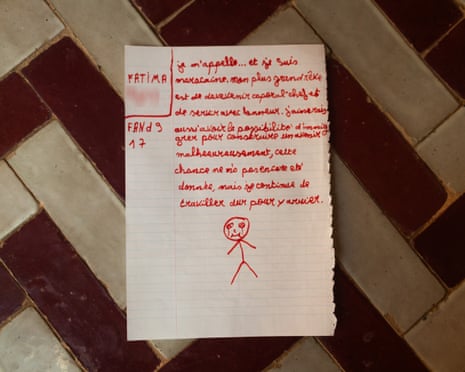 FATIMA
FANd9
17
je m'appelle... et je suis
marocaine. mon plus grand rêve
est de devevenir caporal-chef et
de servir avec honneur. j'aimerais
aussi avoir le possibilité d'immig
grer pour construire un avenir
malheureusement, cette
chance ne m'a pas encore été
donnée, mais je continue de
traviller dur pour y arriver.